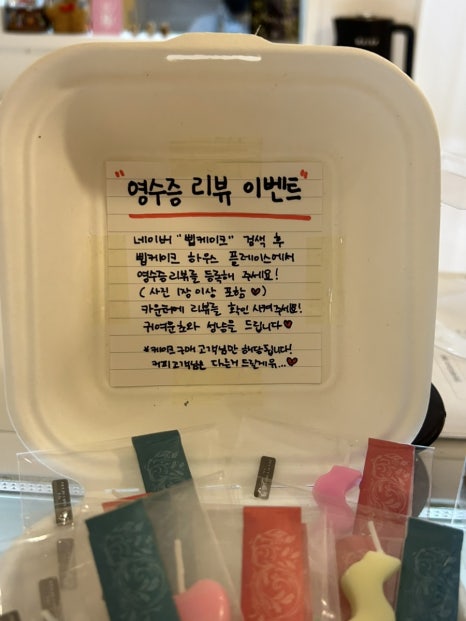 "영수증 리뷰 이벤트"
네이버 "삡케이크" 검색 후
삡케이크 하우스 플레이스에서
영수증리뷰를 등록해 주세요!
(사진 1장 이상 포함 ♥)
카운터에 리뷰를 확인 시켜주세요!
귀여운초와 성냥을 드립니다♥
*케이크 구매 고객님만 해당됩니다!
커피고객님은 다른거 드릴게유...♥